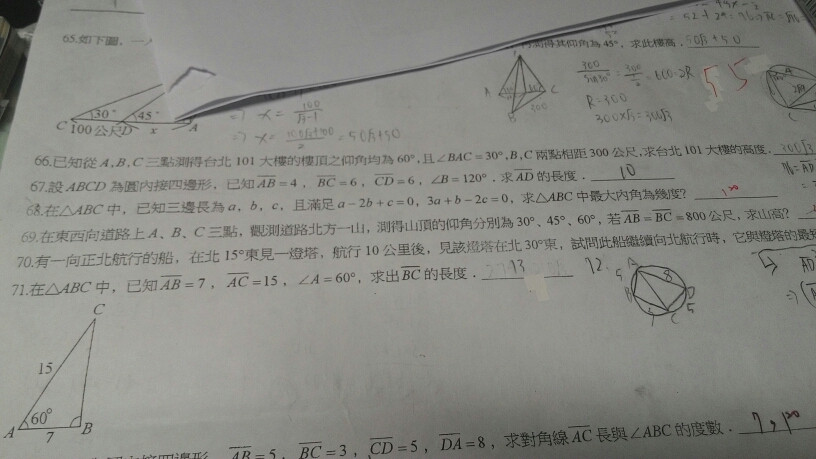 65.如下圖，一
測得其仰角為 45°，求此樓高．50√3+50
30° 45°
C 100公尺D x A
⇒ x = 100/(√3-1)
⇒ x = (100√3+100)/2 = 50√3+50
A B C 300
300/sin30° = 600 = 2R
R=300
300×√3=300√3
66.已知從 A,B,C 三點測得台北 101 大樓的樓頂之仰角均為 60°,且∠BAC＝30°,B,C 兩點相距 300 公尺,求台北 101 大樓的高度． 300√3
67.設 ABCD 為圓內接四邊形，已知 AB＝4， BC＝6， CD＝6，∠B＝120°．求 AD 的長度． 10
68.在△ABC 中，已知三邊長為 a，b，c，且滿足 a－2b＋c＝0，3a＋b－2c＝0，求△ABC 中最大內角為幾度? 120
69.在東西向道路上 A、B、C 三點，觀測道路北方一山，測得山頂的仰角分別為 30°、45°、60°，若 AB＝BC＝800 公尺，求山高?
70.有一向正北航行的船，在北 15°東見一燈塔，航行 10 公里後，見該燈塔在北 30°東，試問此船繼續向北航行時，它與燈塔的最
71.在△ABC 中，已知 AB＝7， AC＝15，∠A＝60°，求出 BC 的長度． 13
72.
A 5 8 B D 5 C
C
15
60°
A 7 B
接四邊形，AB＝5，BC＝3，CD＝5，DA＝8，求對角線 AC 長與∠ABC 的度數． 7，120